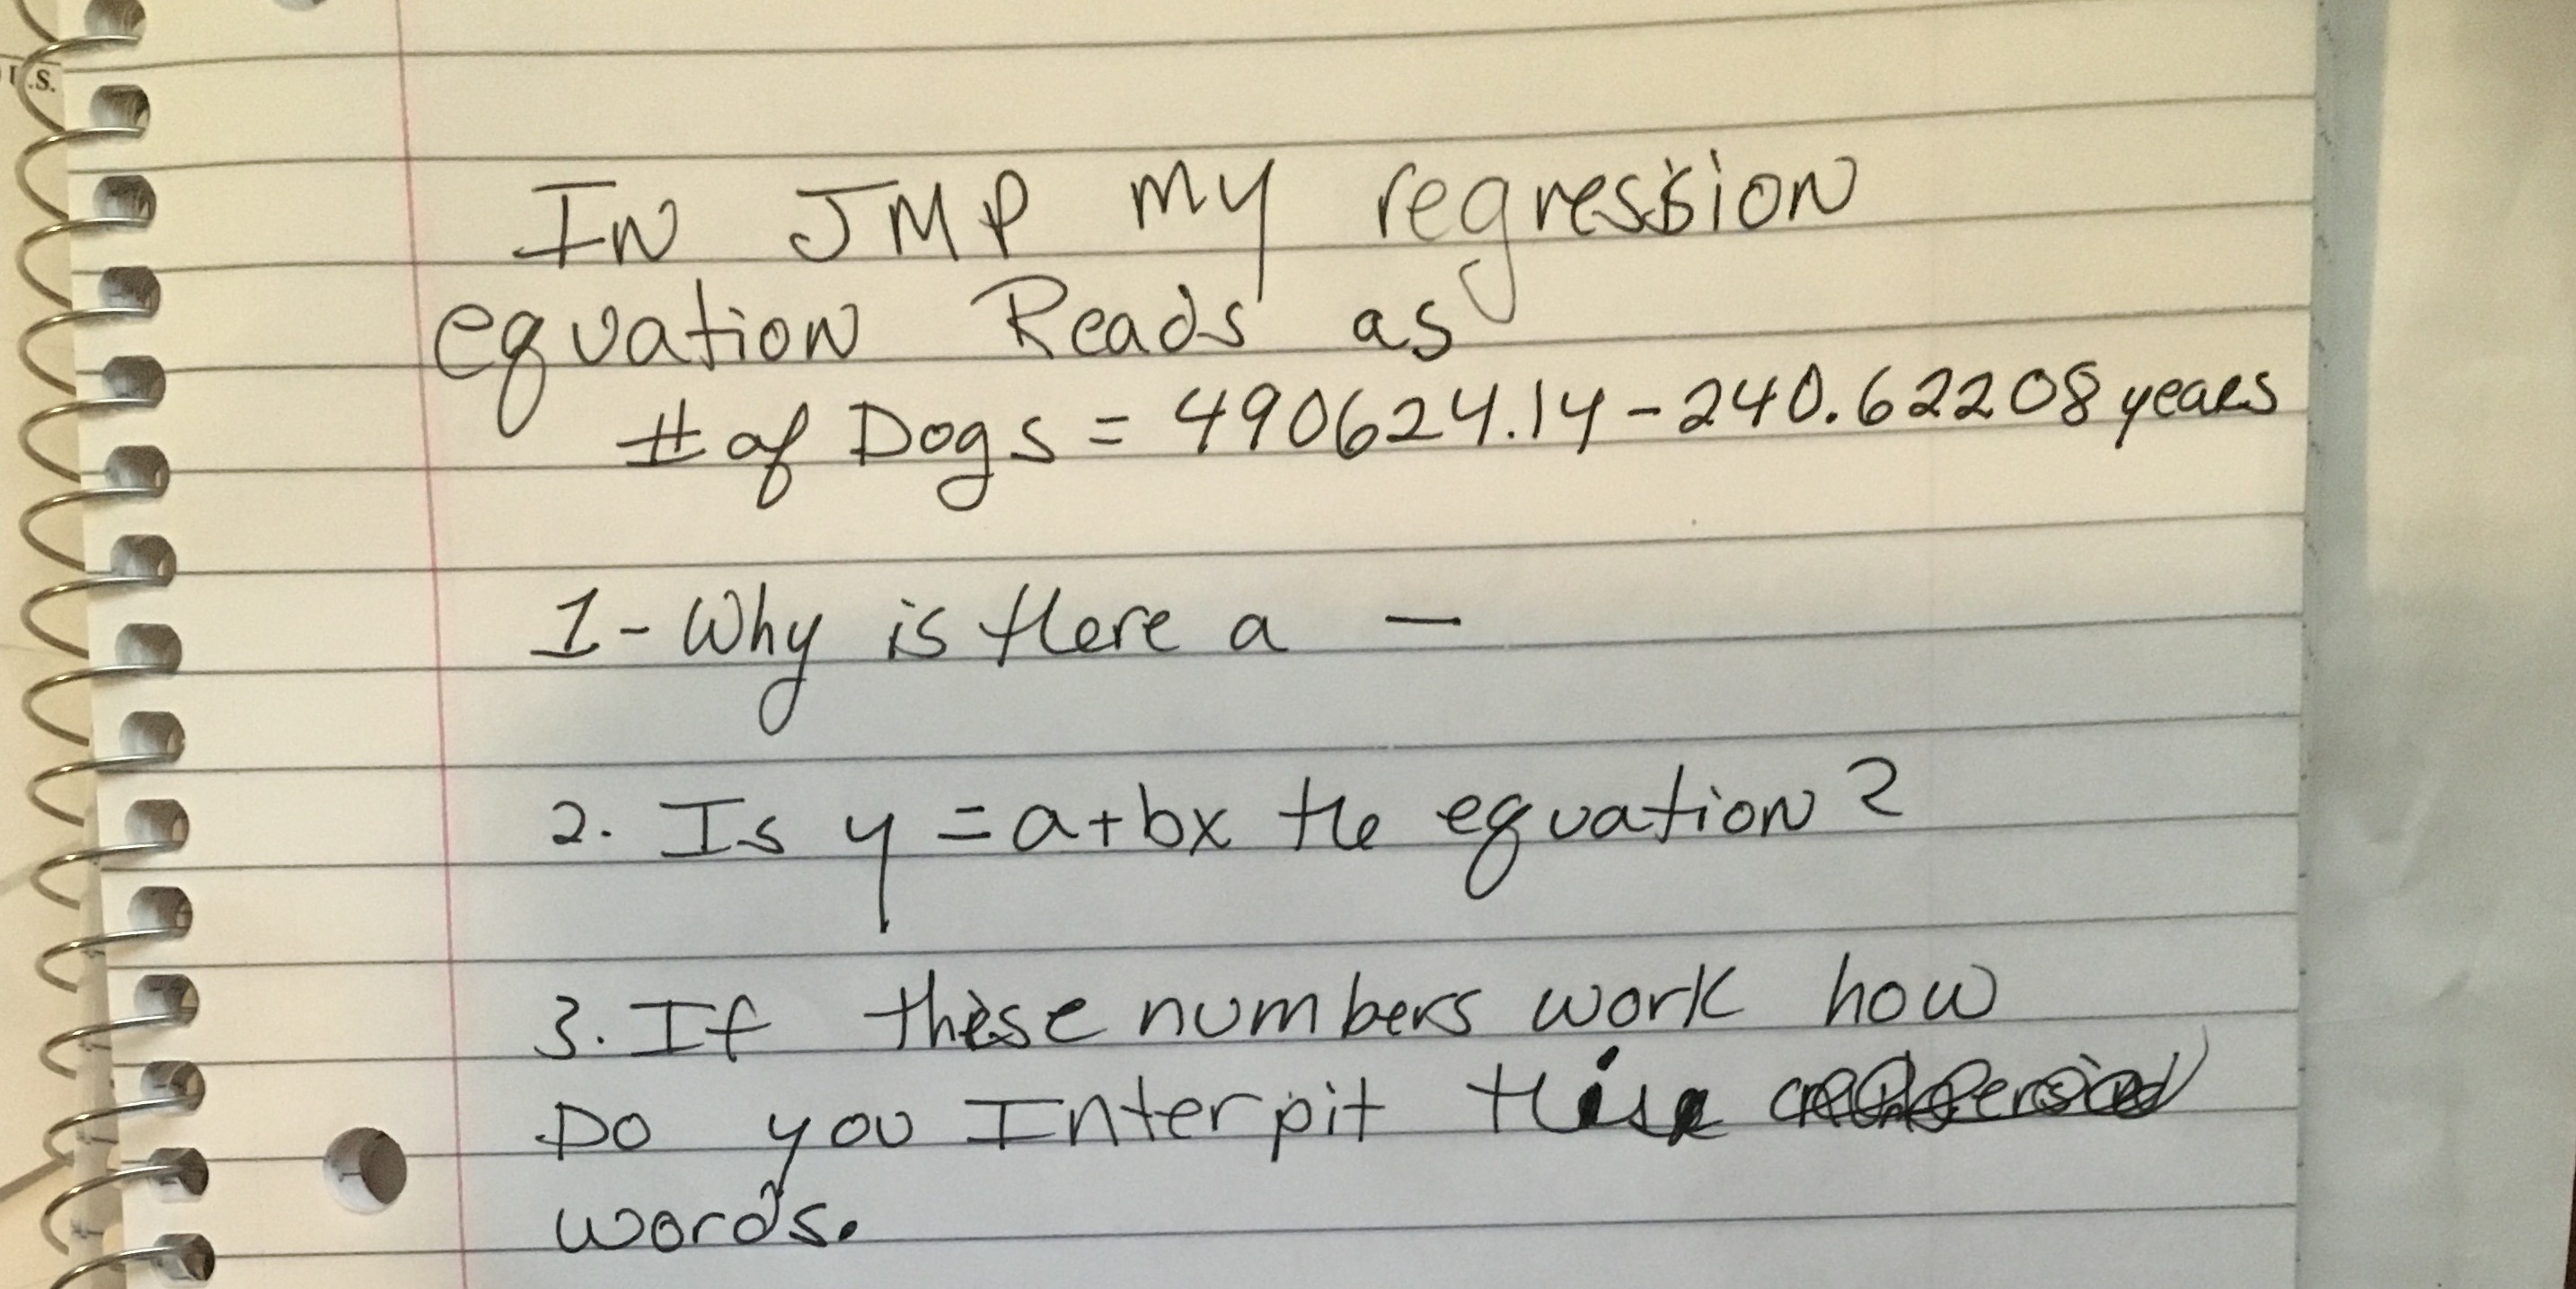 I.S.
In JMP my regression
equation Reads as
# of Dogs = 490624.14 - 240.62208 years
1 - Why is there a —
2. Is y = a + bx the equation?
3. If these numbers work how
Do you Interpit this
words.